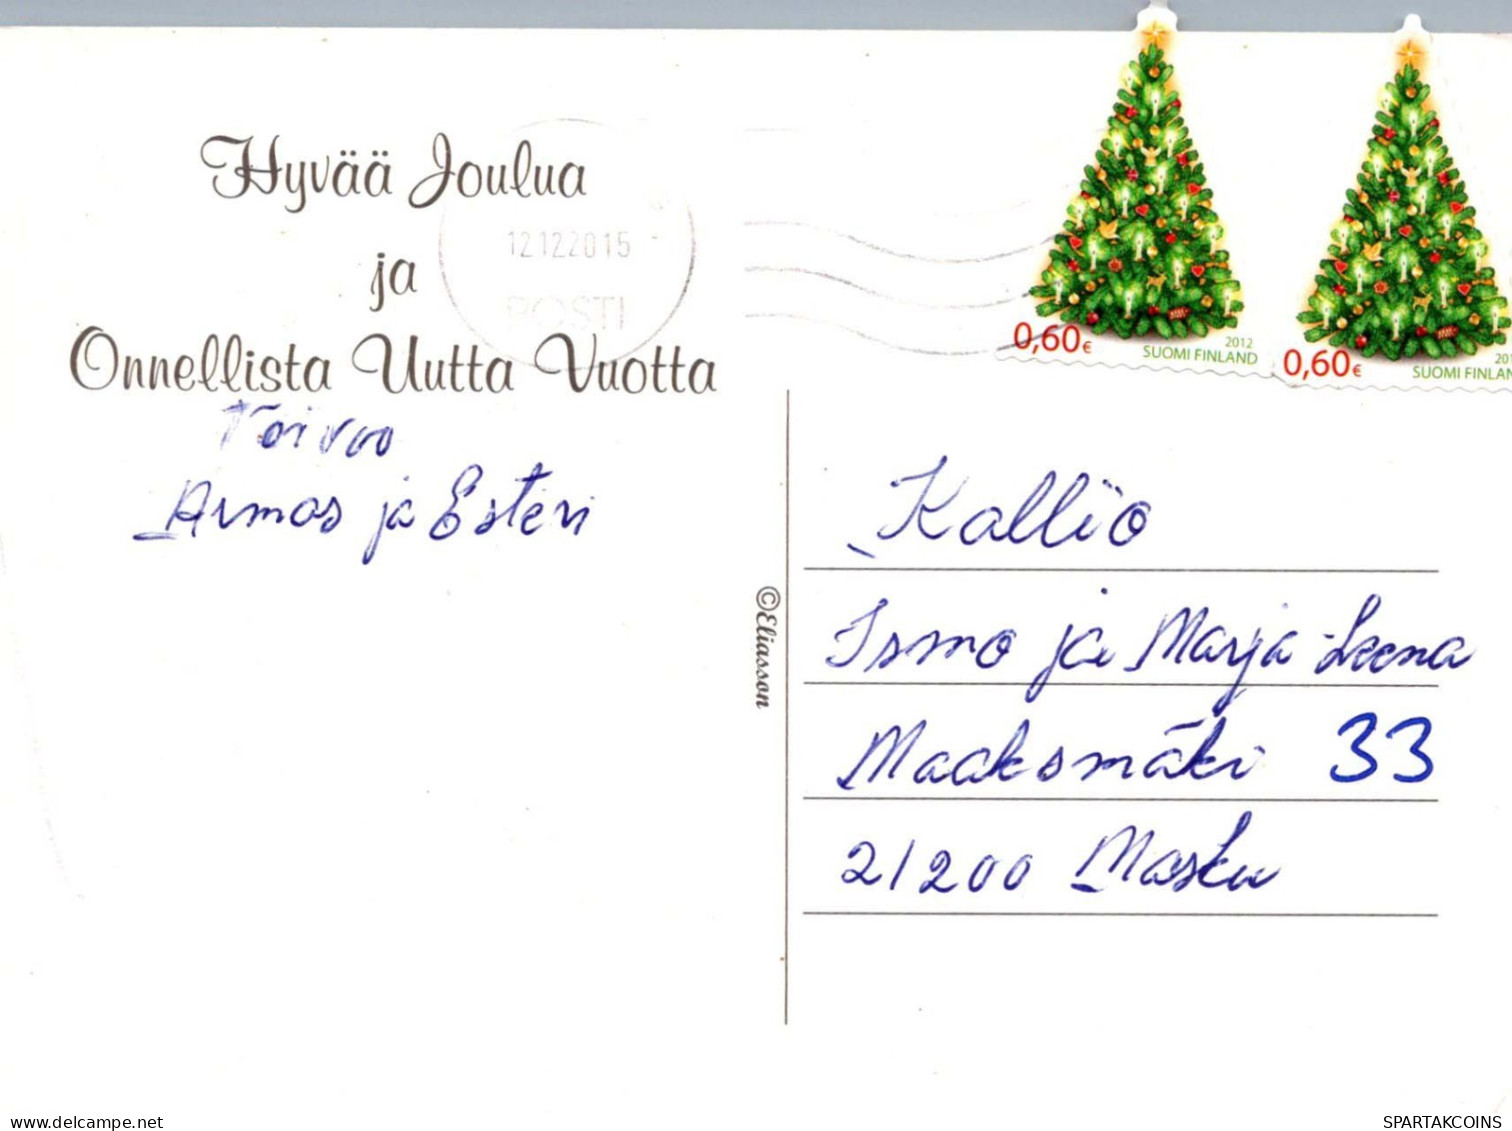 Hyvää Joulua
ja
Onnellista Uutta Vuotta
Toivoo
Armas ja Esteri
12.12.2015
POSTI
0,60€
2012
SUOMI FINLAND
0,60€
SUOMI FINLAN
©Eliasson
Kallio
Ismo ja Marja-Leena
Maaksmäki 33
21200 Masku
delcampe.net
SPARTAKCOINS